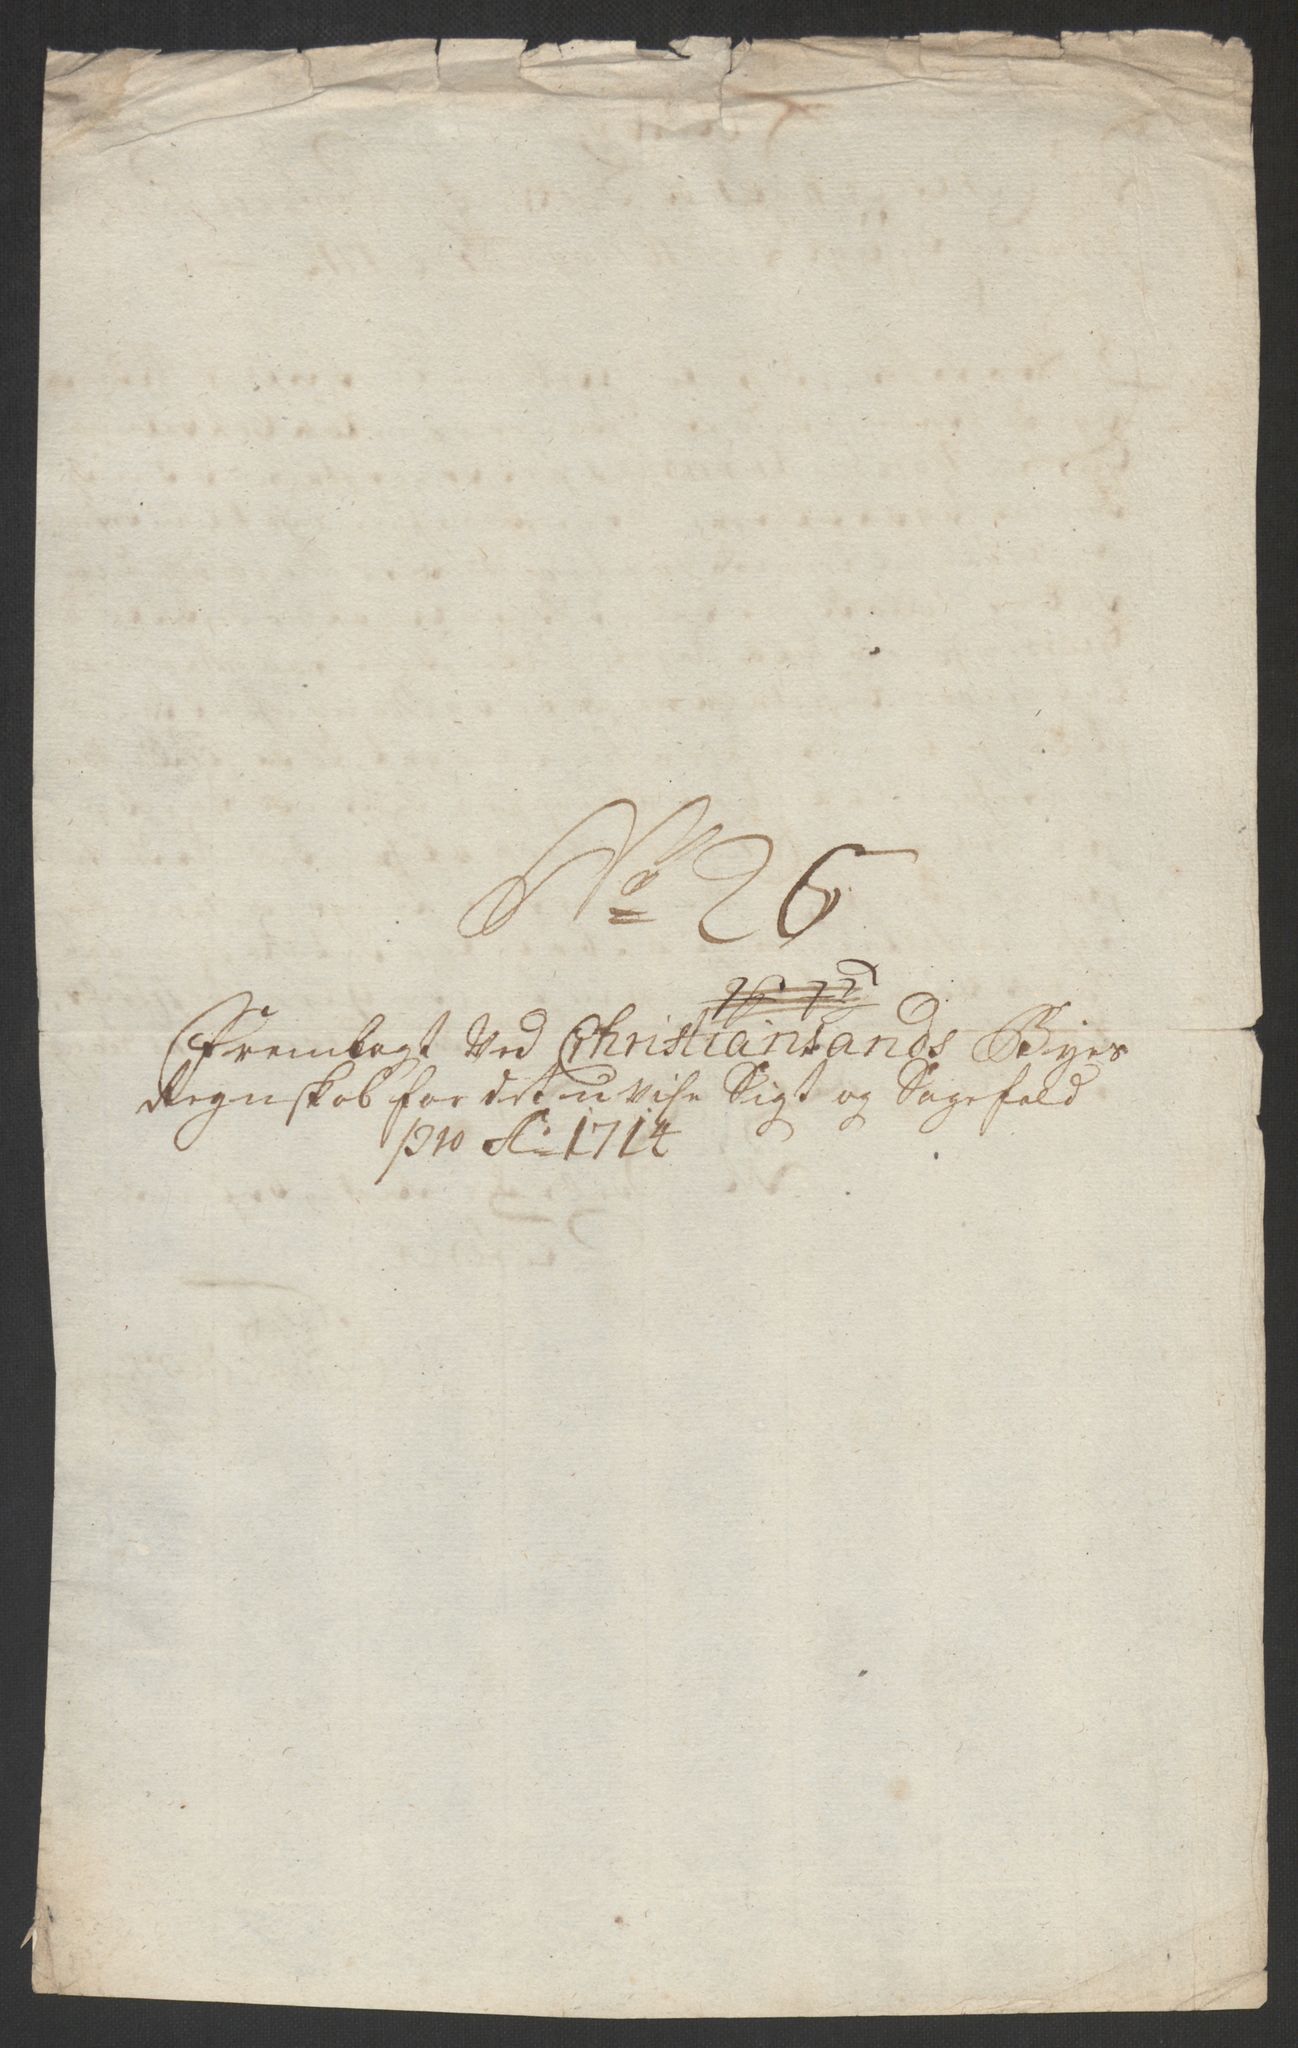 No 26
Fremlagt Ved Christiansands Byes
Regnskob for det u visse Sigt og Sagefald
pro Ao 1714